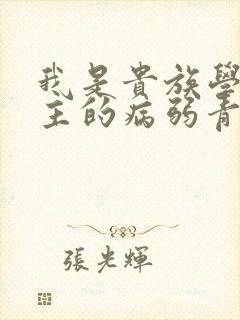 我是貴族學
主的病弱青
張光輝